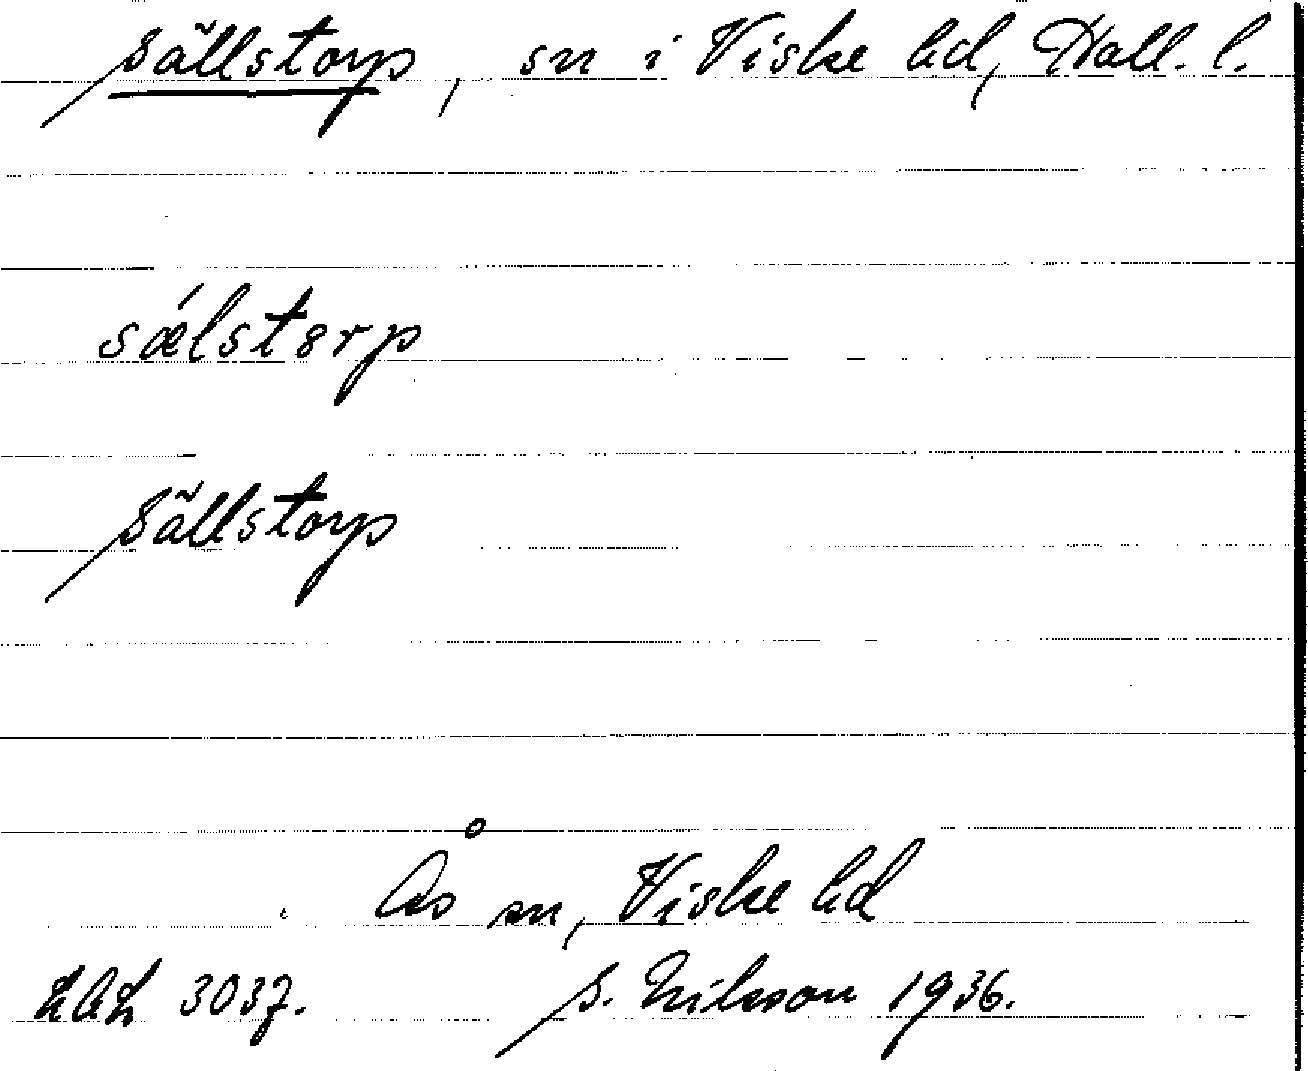 Sällstorp, sn i Viske hd, Hall. l.
sǽlstɤrp
Sällstorp
Ås sn, Viske hd
LAL 3037. S. Nilsson 1936.